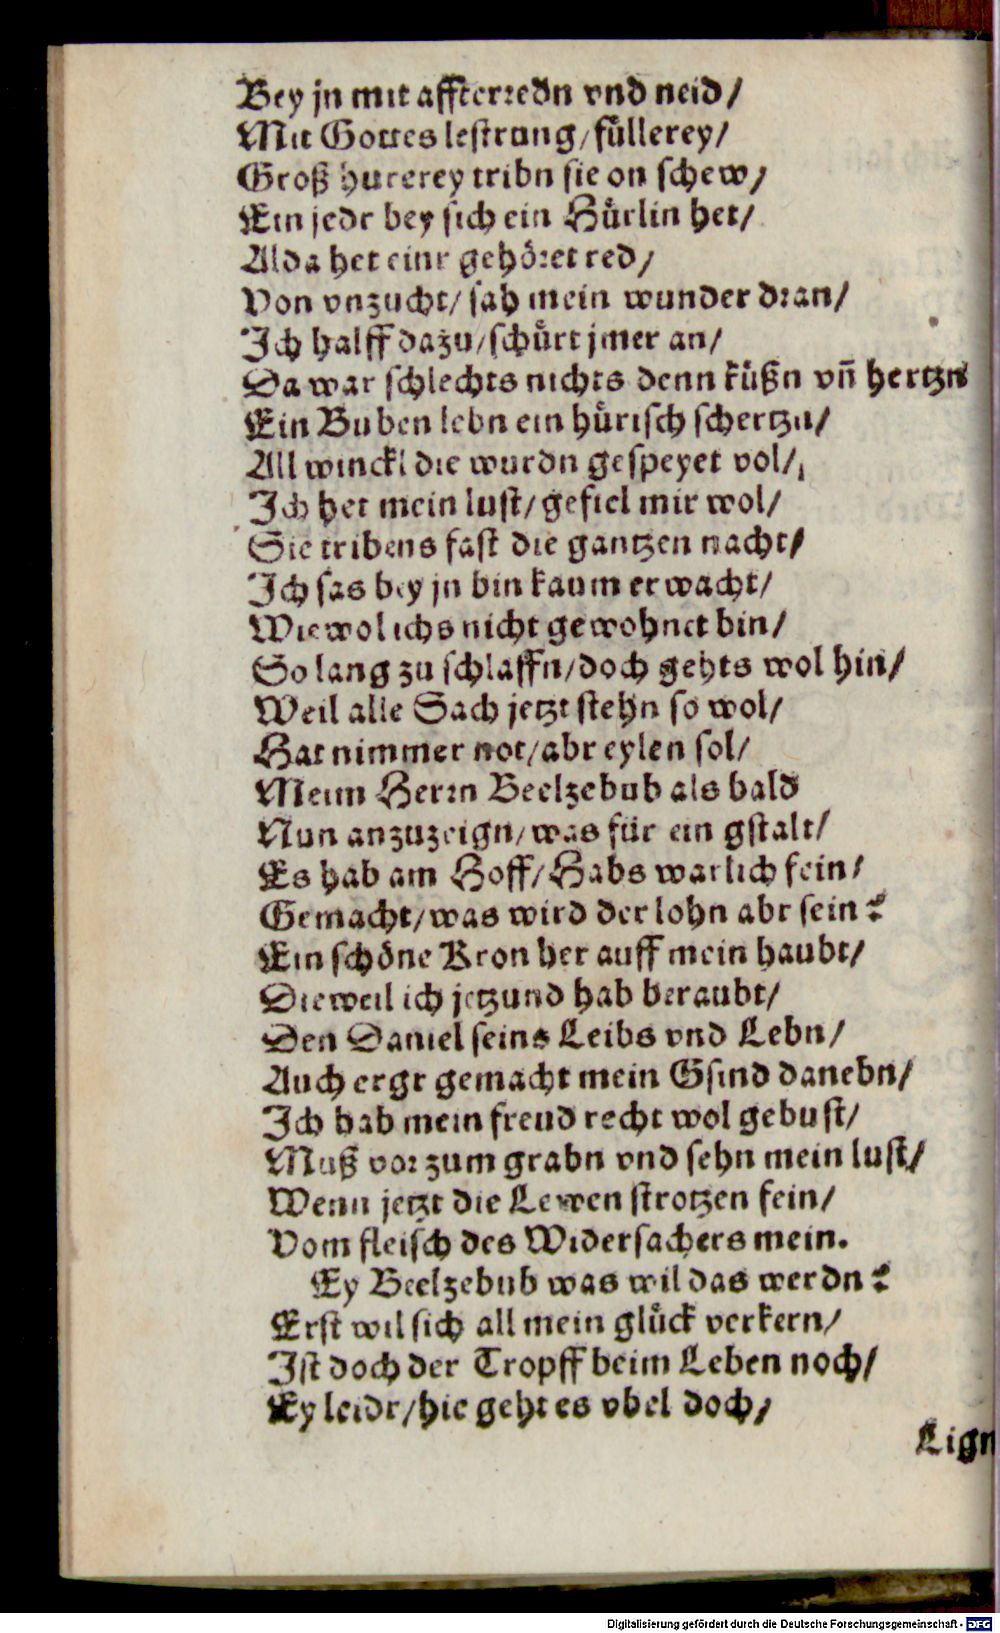 Bey jn mit affterredn vnd neid/
Mit Gottes lestrung/füllerey/
Groß hurerey tribn sie on schew/
Ein jedr bey sich ein Hürlin het/
Alda het einr gehöret red/
Von vnzucht/sah mein wunder dran/
Ich halff dazu/schürt jmer an/
Da war schlechts nichts denn küßn vñ hertzn
Ein Buben lebn ein hürisch schertzn/
All winckl die wurdn gespeyet vol/
Ich het mein lust/gefiel mir wol/
Sie tribens fast die gantzen nacht/
Ich sas bey jn bin kaum erwacht/
Wiewol ichs nicht gewohnet bin/
So lang zu schlaffn/doch gehts wol hin/
Weil alle Sach jetzt stehn so wol/
Hat nimmer not/abr eylen sol/
Meim Herrn Beelzebub als bald
Nun anzuzeign/was für ein gstalt/
Es hab am Hoff/Habs warlich fein/
Gemacht/was wird der lohn abr sein?
Ein schöne Kron her auff mein haubt/
Dieweil ich jetzund hab beraubt/
Den Daniel seins Leibs vnd Lebn/
Auch ergr gemacht mein Gsind danebn/
Ich hab mein freud recht wol gebust/
Muß vor zum grabn vnd sehn mein lust/
Wenn jetzt die Lewen strotzen fein/
Vom fleisch des Widersachers mein.
Ey Beelzebub was wil das werdn?
Erst wil sich all mein glück verkern/
Ist doch der Tropff beim Leben noch/
Ey leidr/hie geht es vbel doch/
Lign
Digitalisierung gefördert durch die Deutsche Forschungsgemeinschaft - DFG